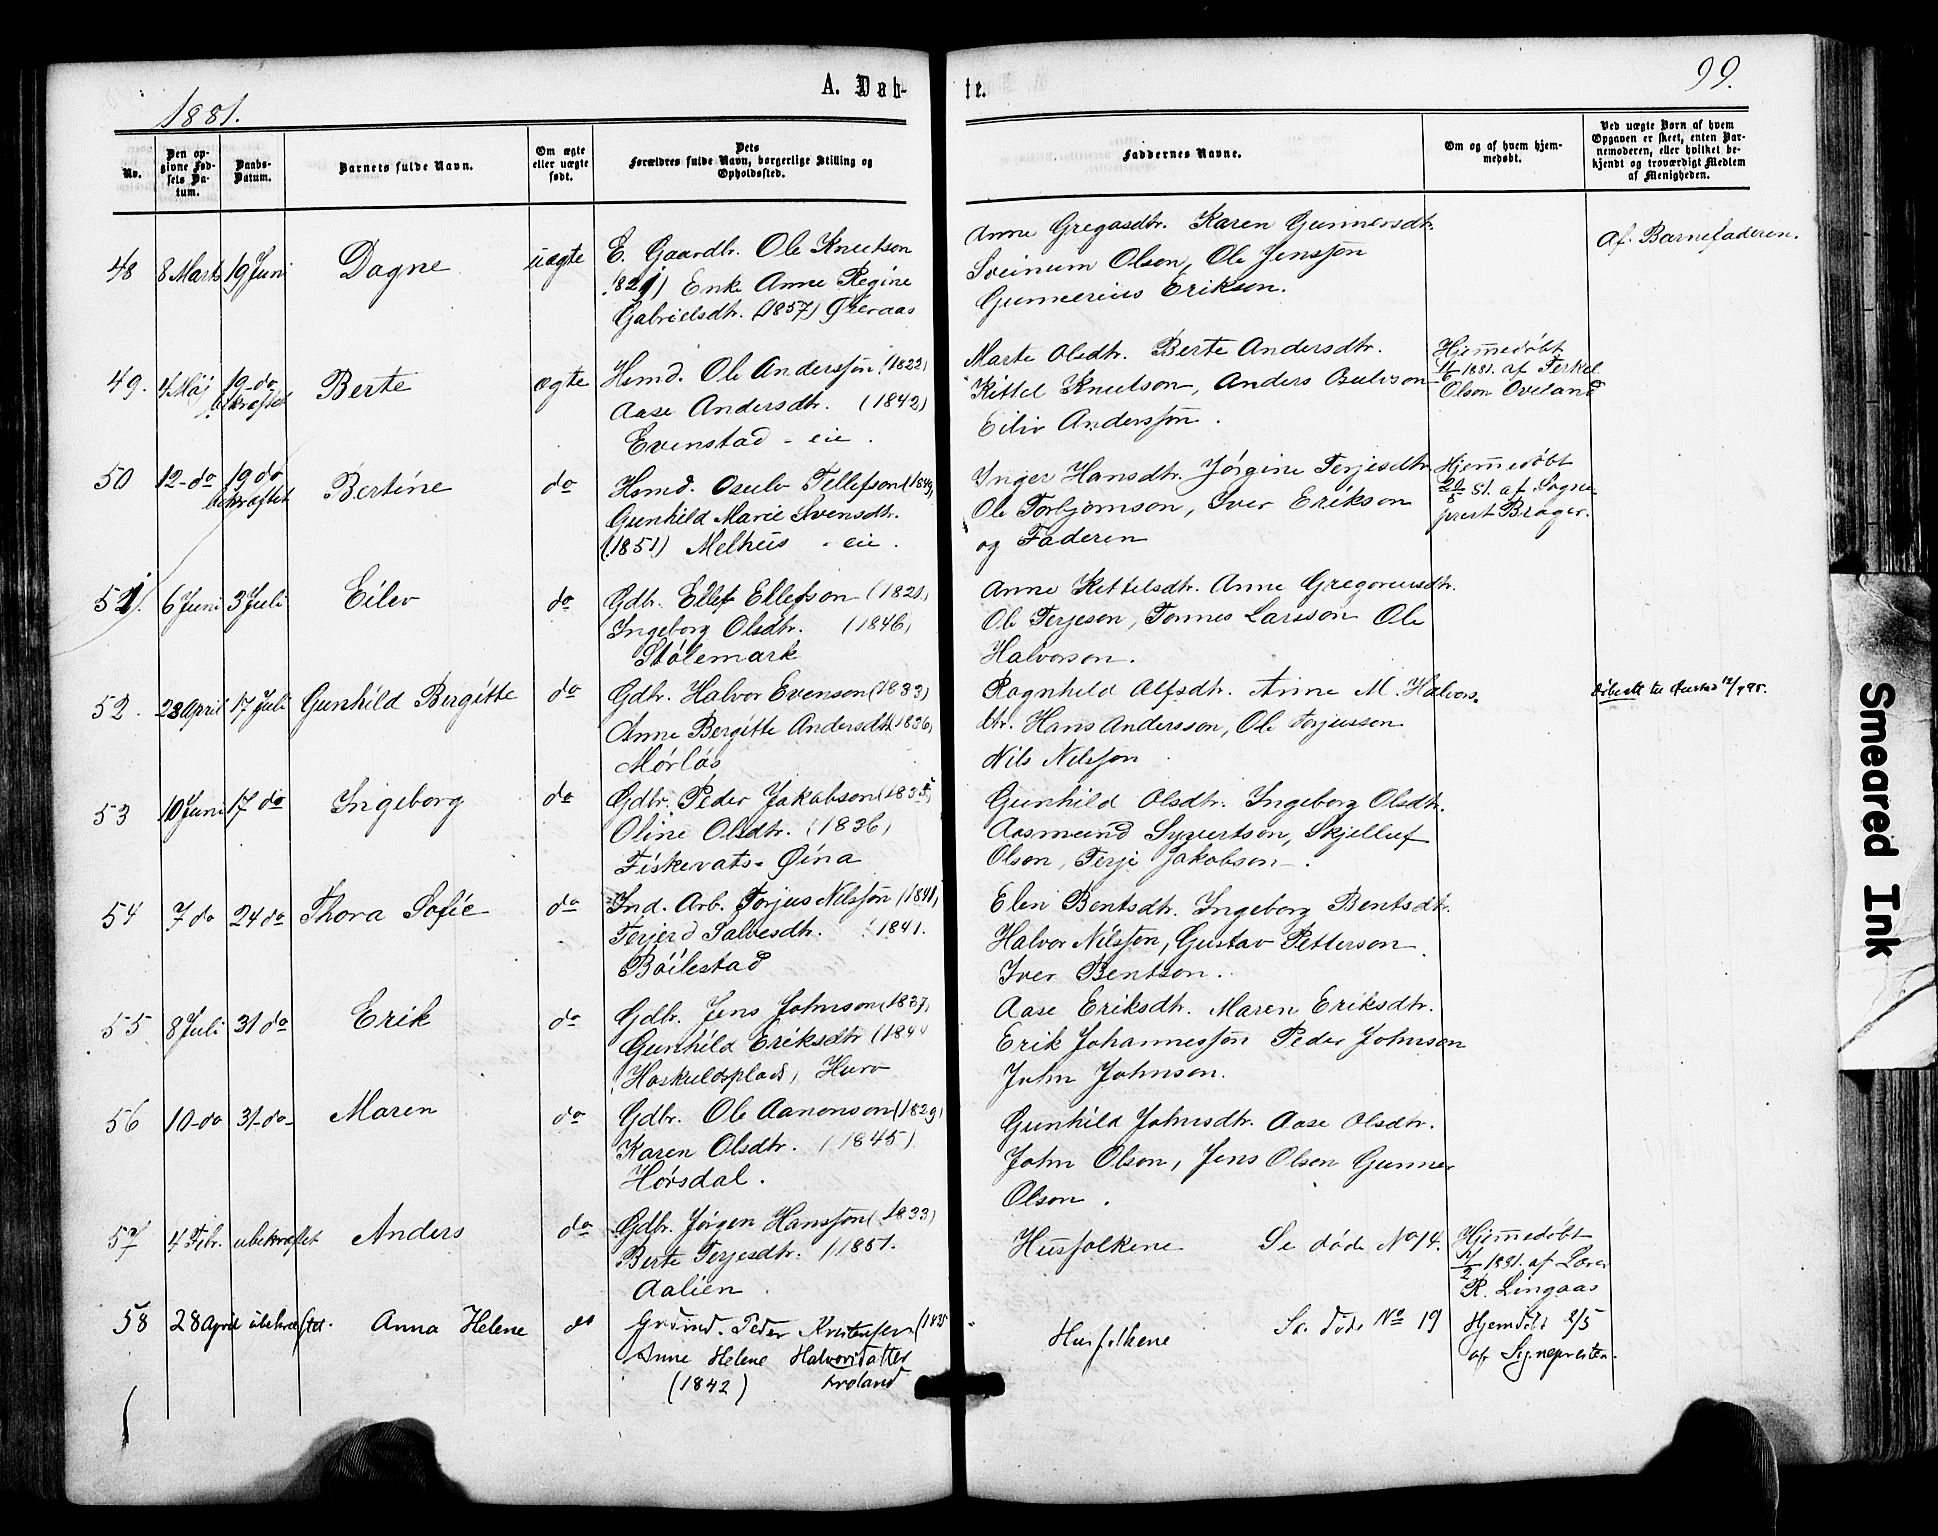 1881.
A. Døb-
te.
99.
No.
Den op-
givne Fød-
sels Da-
tum.
Daabs-
Datum.
Barnets fulde Navn.
Om ægte
eller uægte
født.
Dets
Forældres fulde Navn, borgerlige Stilling og
Opholdssted.
Faddernes Navne.
Om og af hvem hjem-
medøbt.
Ved uægte Børn af hvem
Opgaven er skeet, enten Bar-
nemoderen, eller hvilket be-
kjendt og troværdigt Medlem
af Menigheden.
48 8 Marts 19 Juni Dagne uægte E. Gaardbr. Ole Knutson
1821) Enke Anne Regine
Gabrielsdtr. (1857)
Anne Gregasdtr. Karen Gunnersdtr.
Sveinum Olson, Ole Jensson
Gunnerius Erikson.
Af Barnefaderen.
49. 4 Maj 19-do
bekræftet
Berte ægte Hsmd. Ole Andersson (1822)
Aase Andersdtr. (1842)
Evenstad - eie.
Marte Olsdtr. Berte Andersdtr.
Kittel Knutson, Anders
Eiliv Andersson.
Hjemmedøbt
1881. af Terkel
Olson Oveland
50 12-do 19 do
bekræftet
Bertine do Hsmd. Osulv Tellefson (1849)
Gunhild Marie Svensdtr.
(1851) Melhus - eie.
Inger Hansdtr. Jørgine Terjesdtr.
Ole Torbjørnson, Iver Erikson
og Faderen
Hjemmedøbt
20/5 81. af Sogne-
prest Brager.
51. 6 Juni 3 Juli Eilev do Gdbr. Ellef Ellefson (1821)
Ingeborg Olsdtr. (1846)
Stølemark
Anne Kittelsdtr. Anne Gregoriusdtr.
Ole Terjeson, Tønnes Larsson Ole
Halvorson.
52. 28 April 17 Juli Gunhild Bergitte do Gdbr. Halvor Evenson (1833)
Anne Bergitte Andersdtr. 1836)
Mørlås
Ragnhild Alfsdtr. Anne M. Halvors-
dtr. Hans Andersson, Ole Torjussen
Nils Nilsson
53 10 Juni 17 do Ingeborg do Gdbr. Peder Jakobson (1835)
Oline Olsdtr. (1836)
Fiskevats-Øina
Gunhild Olsdtr. Ingeborg Olsdtr.
Aasmund Syvertson, Skjelluf
Olson, Terje Jakobson.
54 7 do 24 do Thora Sofie do Ind. Arb. Torjus Nilsson (1841)
Terjerd Salvesdtr. (1841.
Bøilestad
Elen Bentsdtr. Ingeborg Bentsdtr.
Halvor Nilsson, Gustav Petterson
Iver Bentson.
55 8 Juli 31 do Erik do Gdbr. Jens Johnson (1837)
Gunhild Eriksdtr (1844
Haskuldsplads, Hurv
Aase Eriksdtr. Maren Eriksdtr.
Erik Johannesson Peder Johnson
John Johnson.
56 10-do 31-do- Maren do Gdbr. Ole Aanonson (1829)
Karen Olsdtr. (1845)
Hørsdal.
Gunhild Johnsdtr. Aase Olsdtr.
John Olson, Jens Olson Gunner
Olson.
57 4 Febr. ubekræftet Anders do Gdbr. Jørgen Hansson (1833)
Berte Terjesdtr. (1851.
Aalien.
Husfolkene Se døde No 14.
Hjemmedøbt
1881. af Lærer
R. Lingaas
58 28 April ubekræftet. Anna Helene do Peder Knutssen (1835
Anne Helene Halvorsdatter
(1842)
Husfolkene Se døde No 19 Hjemdøbt 2/5
af Sognepresten.
Smeared Ink